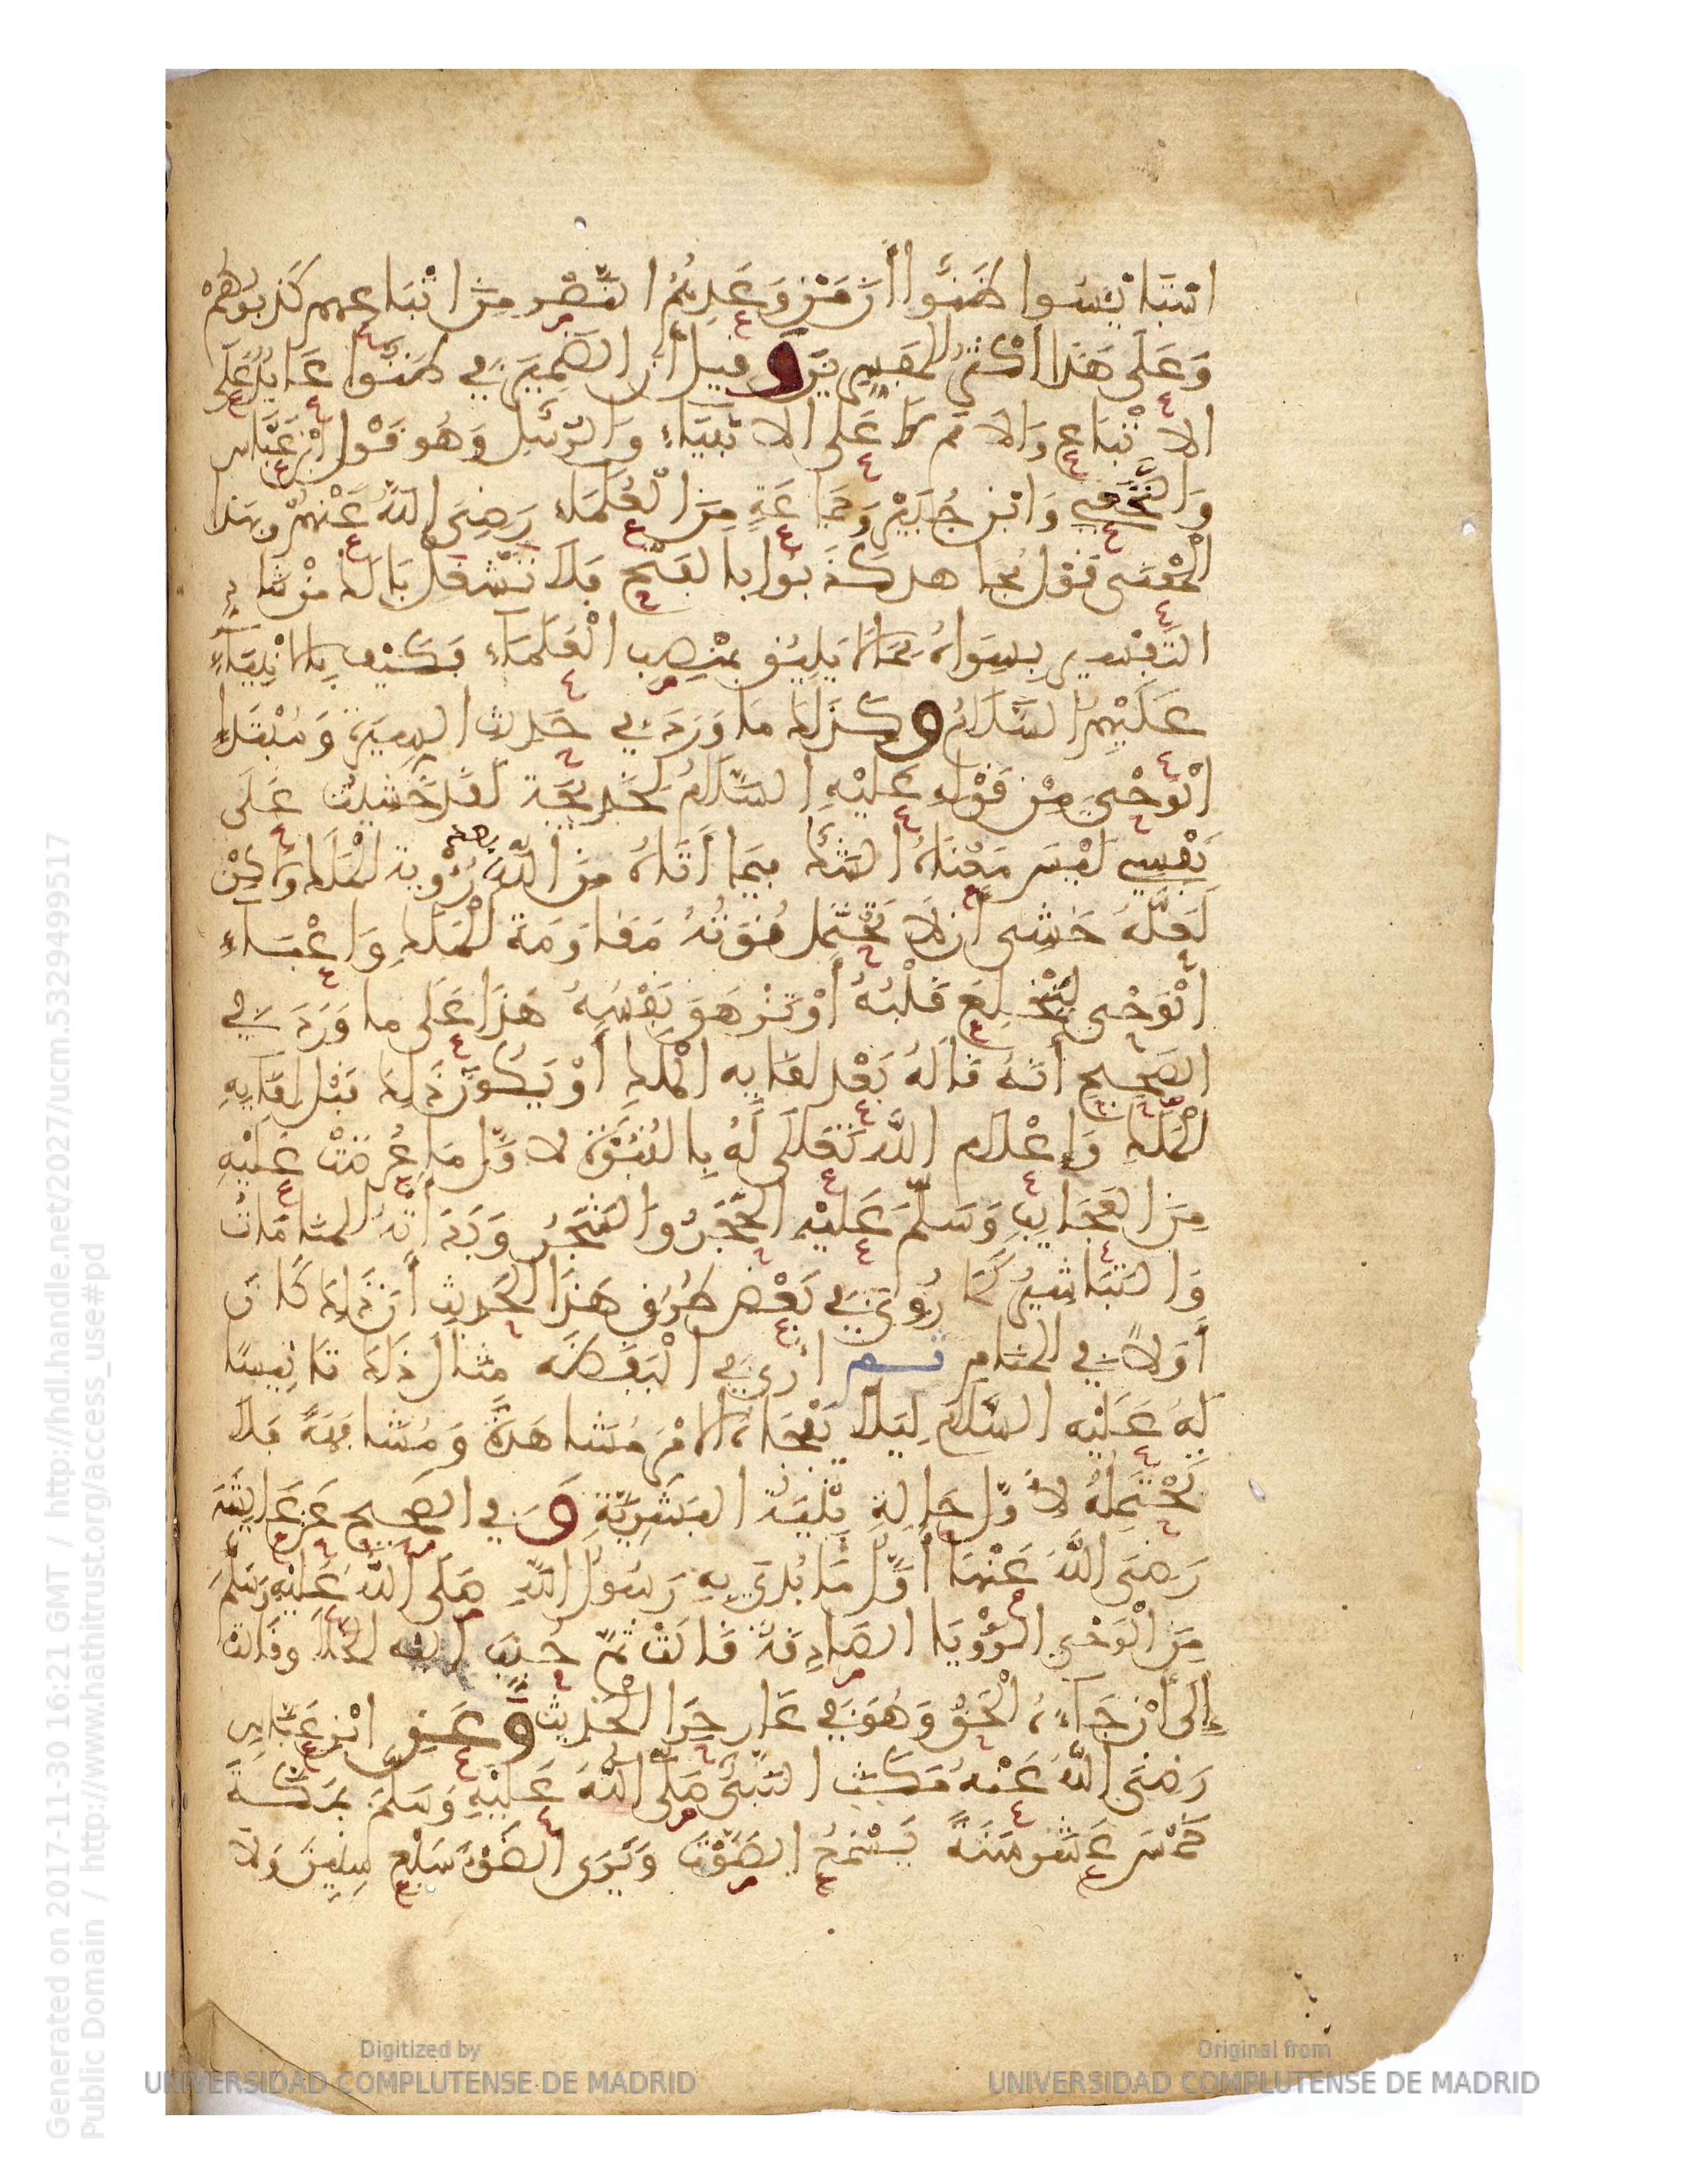 استيايسوا ظنوا أن من وعدهم النصر من اتباعهم كذبوهم
وعلى هذا أكثر المفسرين وقيل أن الضمير في ظنوا عايد على
الاتباع والامم لا على الانبياء والرسل وهو قول ابن عباس
والنخعي وابن جبير وجماعة من العلماء رضي الله عنهم وبهذا
المعنى قول مجاهد كذبوا بالفتح فلا تشغل بالك من شاذ
التفسير بسواه مما لا يليق بمنصب العلماء فكيف بالانبياء
عليهم السلام وكذلك ما ورد في حديث السيرة ومبتدإ
الوحي من قوله عليه السلام لخديجة لقد خشيت على
نفسي ليس معناه الشك فيما أتاه من الله بعد رؤية الملك ولكن
لعله خشى أن لا تحتمل قوته مقاومة الملك واعباء
الوحى لينخلع قلبه أو تزهق نفسه هذا على ما ورد في
الصحيح أنه قاله بعد لقايه الملك أو يكون ذلك قبل لقايه
الملك وإعلام الله تعالى له بالنبوة لاول ما عرضت عليه
من العجايب وسلم عليه الحجر والشجر وبدأته المنامات
والتباشير كما روي في بعض طرق هذا الحديث أن ذلك كان
أولا في المنام ثم أري في اليقظة مثال ذلك تانيسا
له عليه السلام ليلا يفجأه الامر مشاهدة ومشافهة فلا
تحتمله لأول حالة بنية البشرية وفي الصحيح عن عايشة
رضى الله عنها أول ما بدئ به رسول الله صلى الله عليه وسلم
من الوحي الرؤيا الصادقة قالت ثم حبب اليه الخلا وقالت
إلى أن جاءه الحق وهو في غار حرا الحديث وعن ابن عباس
رضى الله عنه مكث النبي صلى الله عليه وسلم بمكة
خمس عشر سنة يسمع الصوت ويرى الضوء سبع سنين ولا
Generated on 2017-11-30 16:21 GMT / http://hdl.handle.net/2027/ucm.5329499517
Public Domain / http://www.hathitrust.org/access_use#pd
Digitized by
UNIVERSIDAD COMPLUTENSE DE MADRID
Original from
UNIVERSIDAD COMPLUTENSE DE MADRID